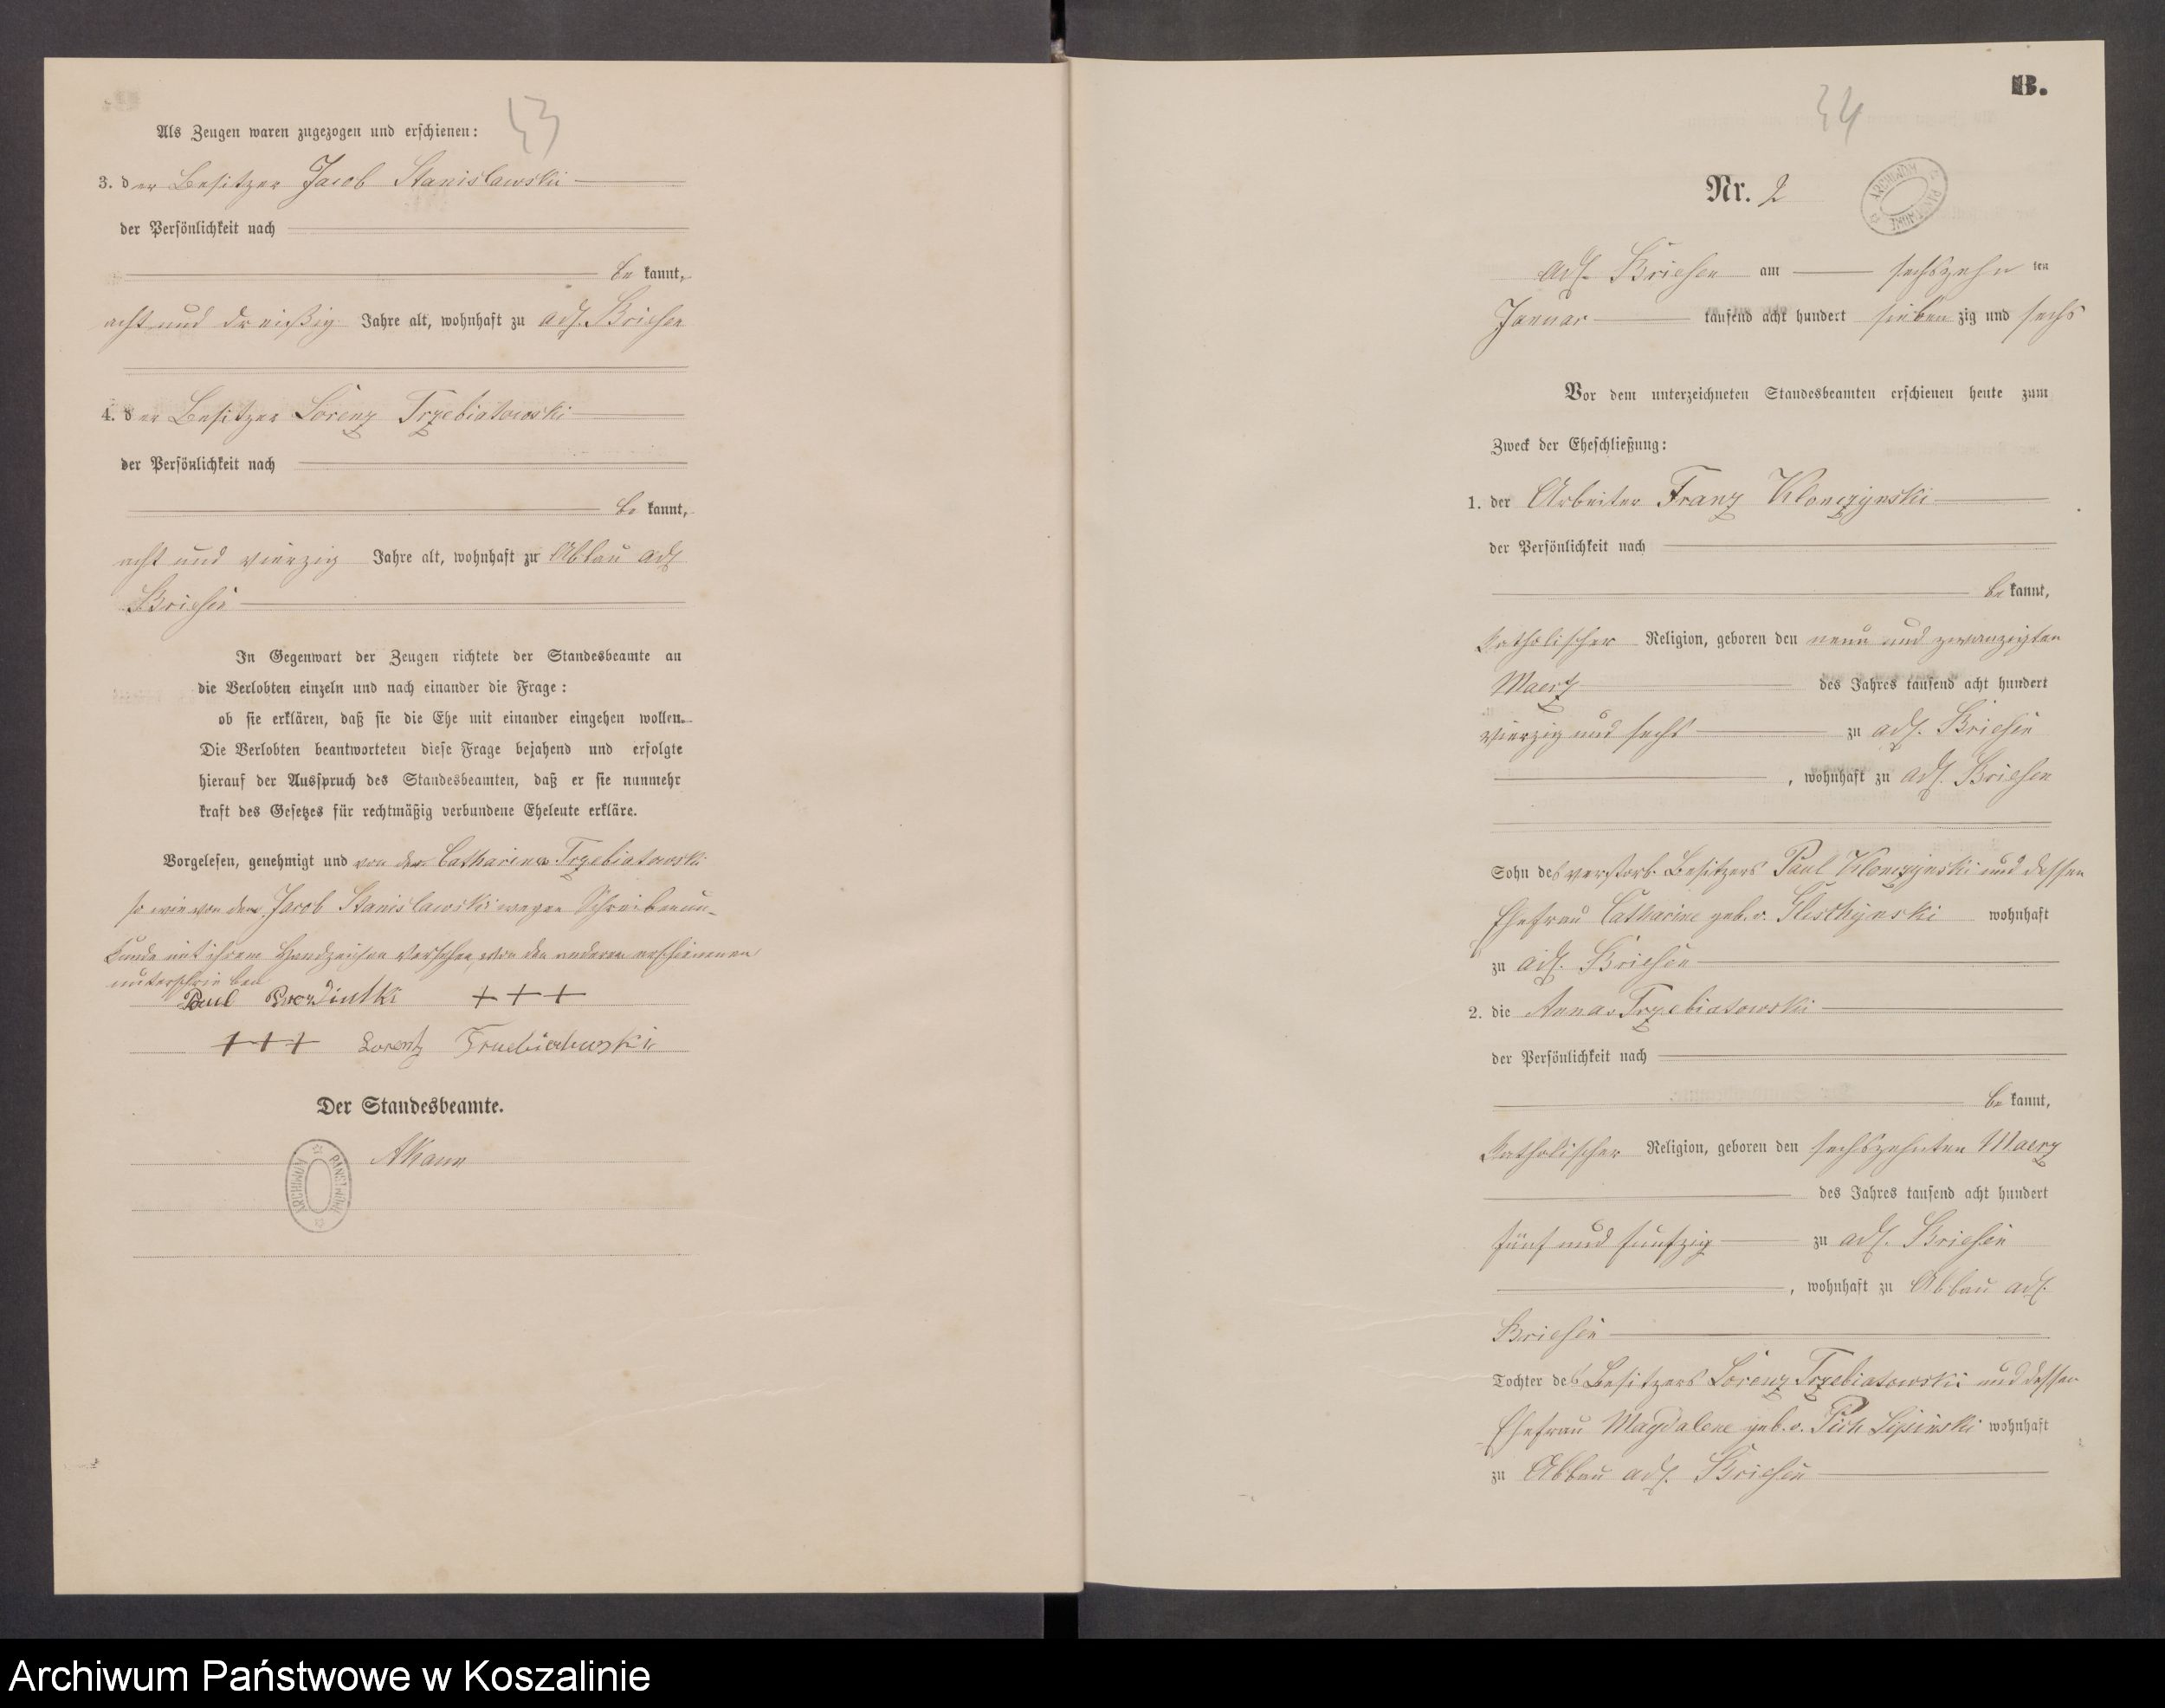 43
Als Zeugen waren zugezogen und erschienen:
3. der Besitzer Jacob Stanislawski
der Persönlichkeit nach
be kannt,
acht und dreißig Jahre alt, wohnhaft zu adl. Briesen
4. der Besitzer Lorenz Trzebiatowski
der Persönlichkeit nach
be kannt,
acht und vierzig Jahre alt, wohnhaft zu Abbau adl
Briesen
In Gegenwart der Zeugen richtete der Standesbeamte an
die Verlobten einzeln und nach einander die Frage:
ob sie erklären, daß sie die Ehe mit einander eingehen wollen.
Die Verlobten beantworteten diese Frage bejahend und erfolgte
hierauf der Ausspruch des Standesbeamten, daß er sie nunmehr
kraft des Gesetzes für rechtmäßig verbundene Eheleute erkläre.
Vorgelesen, genehmigt und von der Catharina Trzebiatowski
so wie von dem Jacob Stanislawski wegen Schreibensun-
kunde mit ihrem Handzeichen versehen, von den anderen erschienenen
unterschrieben
Paul +++
+++ Lorentz
Der Standesbeamte.
ARCHIWUM PAŃSTWOWE
34
B.
Nr. 2
ARCHIWUM PAŃSTWOWE
adl. Briesen am sechszehn ten
Januar tausend acht hundert sieben zig und sechs
Vor dem unterzeichneten Standesbeamten erschienen heute zum
Zweck der Eheschließung:
1. der Arbeiter Franz Klonczynski
der Persönlichkeit nach
be kannt,
katholischer Religion, geboren den neun und zwanzigsten
Maerz des Jahres tausend acht hundert
vierzig und sechs zu adl. Briesen
, wohnhaft zu adl. Briesen
Sohn des verstorb. Besitzers Paul Klonczynski und dessen
Ehefrau Catharine geb. v. wohnhaft
zu adl. Briesen
2. die Anna Trzebiatowski
der Persönlichkeit nach
be kannt,
katholischer Religion, geboren den sechszehnten Maerz
des Jahres tausend acht hundert
fünf und funfzig zu adl. Briesen
, wohnhaft zu Abbau adl.
Briesen
Tochter des Besitzers Lorenz Trzebiatowski und dessen
Ehefrau Magdalene geb. v. Pich Lipinski wohnhaft
zu Abbau adl. Briesen
Archiwum Państwowe w Koszalinie